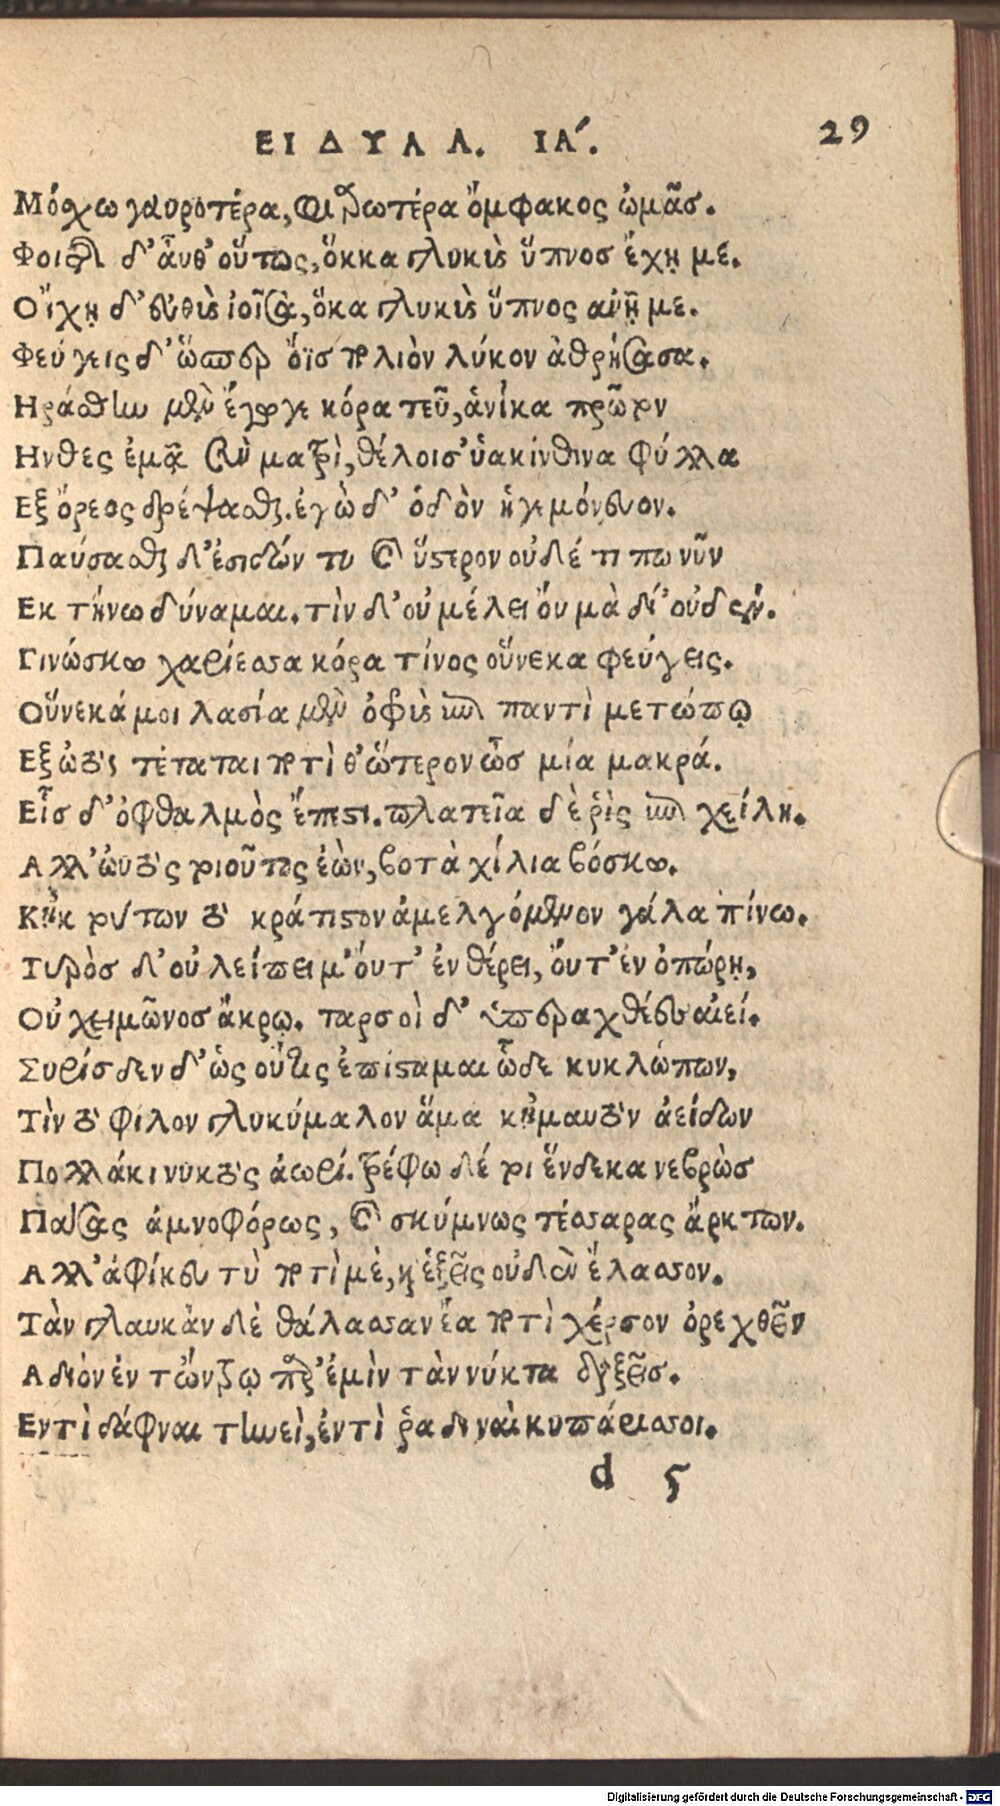 ΕΙΔΥΛΛ. ΙΑ΄. 29
Μόσχω γαυροτέρα, φιαρωτέρα ὄμφακος ὠμᾶσ.
Φοιτῇς δ’ αὖθ’ οὕτως, ὅκκα γλυκὺς ὕπνοσ ἔχῃ με.
Οἴχῃ δ’ εὐθὺς ἰοῖσα, ὅκα γλυκὺς ὕπνος ἀνῇ με.
Φεύγεις δ’ ὥσπερ ὄϊσ πολιὸν λύκον ἀθρήσασα.
Ηράσθην μὲν ἔγωγε κόρα τεῦ, ἁνίκα πρῶτον
Ηνθες ἐμᾷ σὺν ματρὶ, θέλοισ’ ὑακίνθινα φύλλα
Εξ ὄρεος δρέψασθαι. ἐγὼ δ’ ὁδὸν ἡγεμόνευον.
Παύσασθαι δ’ ἐσιδών τυ καὶ ὕστερον οὐδέ τι πω νῦν
Εκ τήνω δύναμαι. τὶν δ’ οὐ μέλει ὄυ μὰ δί’ οὐδέν.
Γινώσκω χαρίεσσα κόρα τίνος οὕνεκα φεύγεις.
Οὕνεκά μοι λασία μὲν ὀφρὺς ἐπὶ παντὶ μετώπῳ
Εξ ὠτὸς τέταται ποτὶ θ’ ὥτερον ὦσ μία μακρά.
Εἷσ δ’ ὀφθαλμὸς ἔπεστι. πλατεῖα δὲ ῥὶς ἐπὶ χείλη.
Αλλ’ ὡυτὸς τοιοῦτος ἐὼν, βοτὰ χίλια βόσκω.
Κἠκ τούτων τὸ κράτιστον ἀμελγόμενον γάλα πίνω.
Τυρὸσ δ’ οὐ λείπει μ’ ὄυτ’ ἐν θέρει, ὄυτ’ ἐν ὀπώρῃ,
Οὐ χειμῶνοσ ἄκρῳ. ταρσοὶ δ’ ὑπεραχθέες αἰεί.
Συρίσδεν δ’ ὡς οὔτις ἐπίσταμαι ὧδε κυκλώπων,
Τὶν τὸ φίλον γλυκύμαλον ἅμα κἠμαυτὸν ἀείδων
Πολλάκι νυκτὸς ἀωρί. τρέφω δέ τοι ἕνδεκα νεβρὼσ
Πάσας ἀμνοφόρως, καὶ σκύμνως τέσσαρας ἄρκτων.
Αλλ’ ἀφίκευ τὺ ποτὶ μὲ, καὶ ἑξεῖς οὐδὲν ἔλασσον.
Τὰν γλαυκὰν δὲ θάλασσαν ἔα ποτὶ χέρσον ὀρεχθεῖν
Αδιον ἐν τὤντρῳ παρ’ ἐμὶν τὰν νύκτα διαξεῖσ.
Εντὶ δάφναι τηνεὶ, ἐντὶ ῥαδιναὶ κυπάρισσοι.
d 5
Digitalisierung gefördert durch die Deutsche Forschungsgemeinschaft - DFG